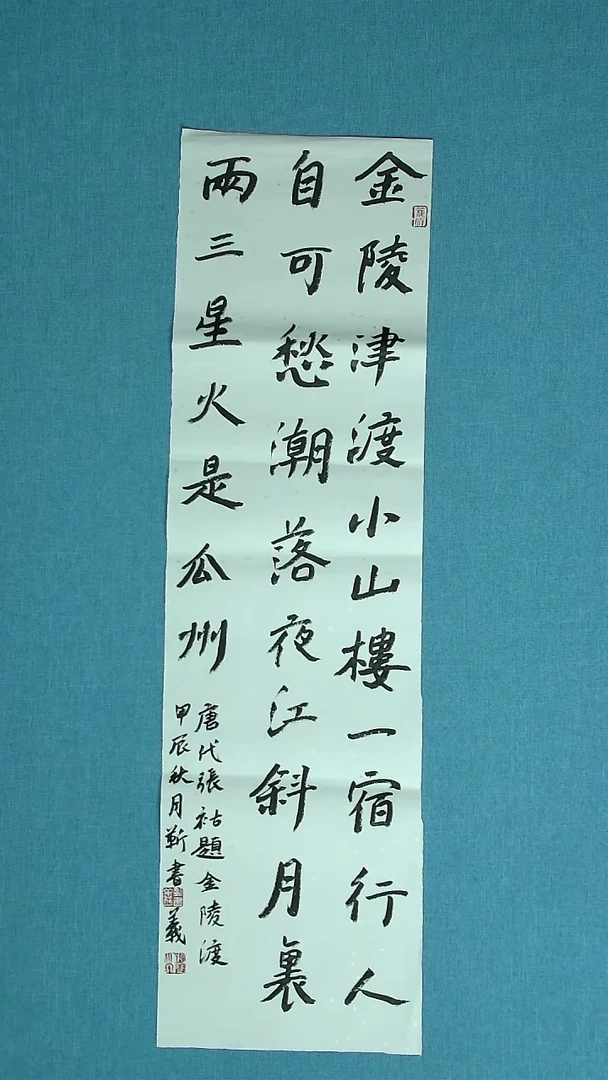 金陵津渡小山樓一宿行人
自可愁潮落夜江斜月裏
兩三星火是瓜州
唐代張祜題金陵渡
甲辰秋月靳書義